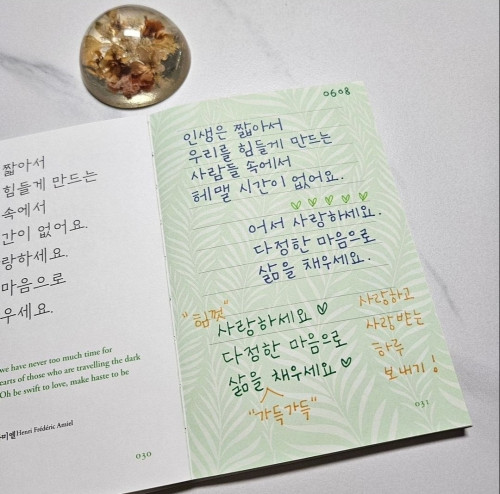 짧아서
힘들게 만드는
속에서
간이 없어요.
랑하세요.
마음으로
우세요.
we have never too much time for
earts of those who are travelling the dark
Oh be swift to love, make haste to be
미엘 Henri Frédéric Amiel
030
0608
인생은 짧아서
우리를 힘들게 만드는
사람들 속에서
헤맬 시간이 없어요.
어서 사랑하세요.
다정한 마음으로
삶을 채우세요.
"힘껏"
사랑하세요
다정한 마음으로
삶을 채우세요
"가득가득"
사랑하고
사랑받는
하루
보내기!
031